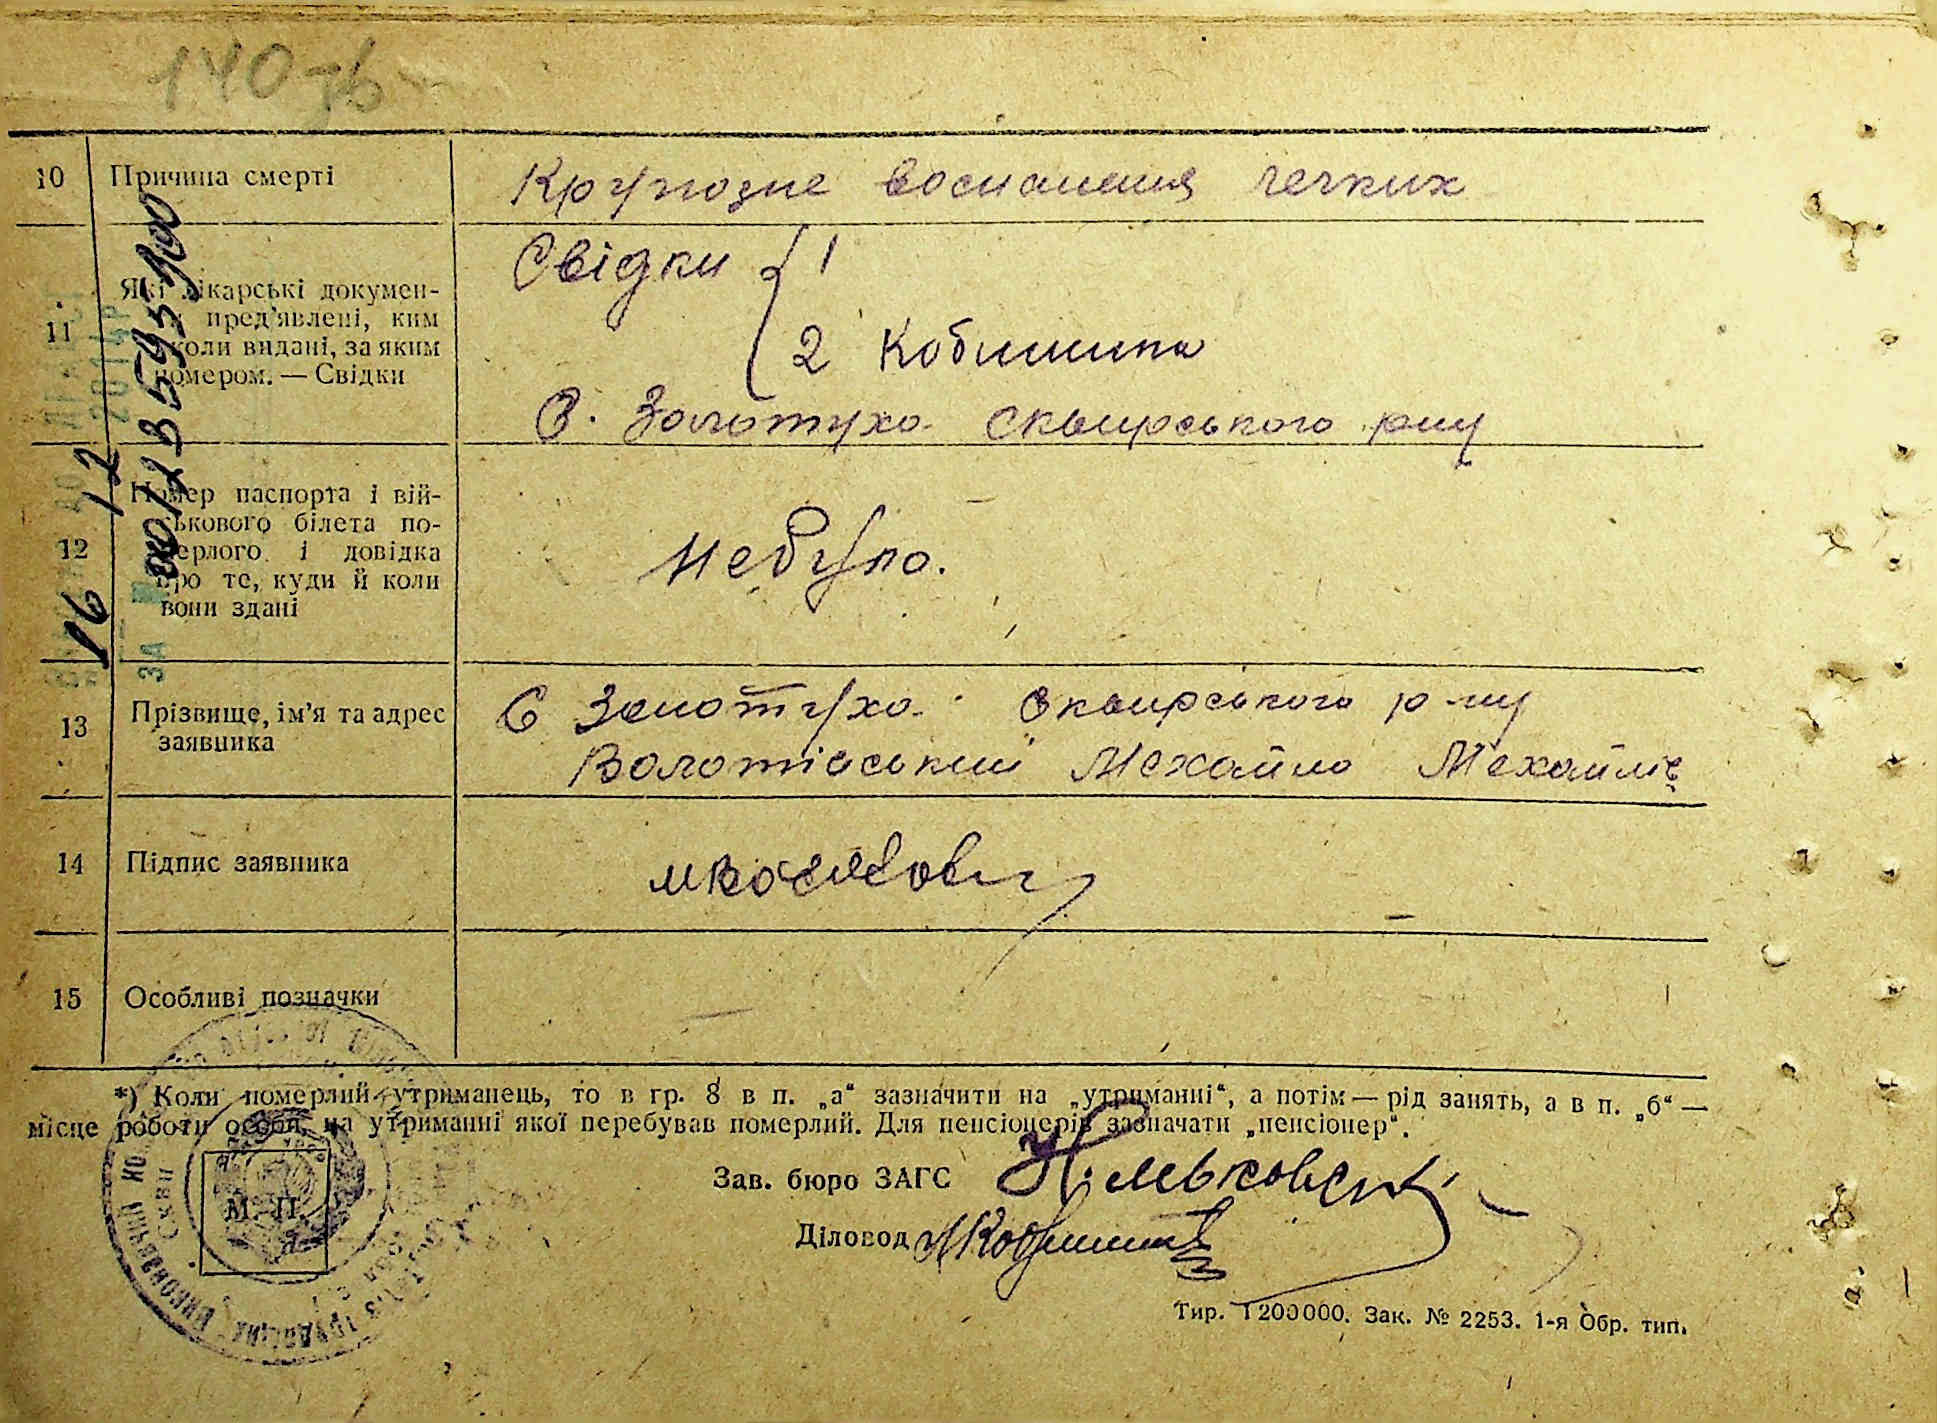 140
10 Причина смерті
Крупозне воспаления легких
Свідки 1
11 Які лікарські докумен-
пред'явлені, ким
коли видані, за яким
номером. — Свідки
2 Кобишина
С. Золотуха Сквирського р-ну
12 Номер паспорта і вій-
ськового білета по-
мерлого і довідка
про те, куди й коли
вони здані
Небуло.
13 Прізвище, ім'я та адрес
заявника
С Золотуха Сквирського р-ну
Михайло
14 Підпис заявника
15 Особливі позначки
*) Коли померлий утриманець, то в гр. 8 в п. „а“ зазначити на „утриманні“, а потім — рід занять, а в п. „б“ —
місце роботи особи, на утриманні якої перебував померлий. Для пенсіонерів зазначати „пенсіонер“.
М. П.
Зав. бюро ЗАГС
Діловод
Тир. 1200000. Зак. № 2253. 1-я Обр. тип.
16 12
ЗА № 00123595900